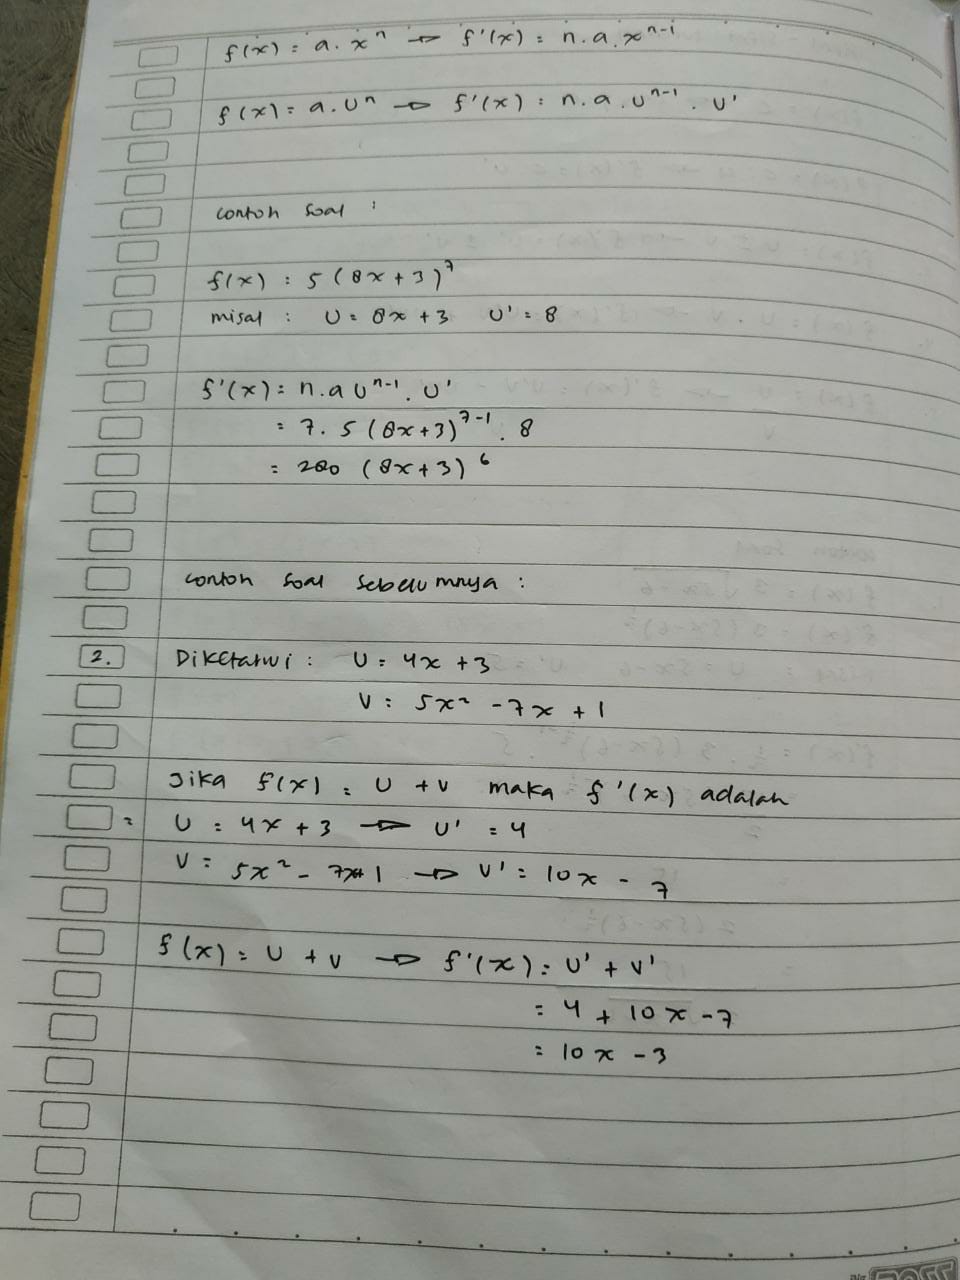 f(x) = a . xⁿ → f'(x) = n . a . xⁿ⁻¹
f(x) = a . Uⁿ → f'(x) = n . a . Uⁿ⁻¹ . U'
contoh soal :
f(x) = 5 (8x + 3)⁷
misal : U = 8x + 3 U' = 8
f'(x) = n . a Uⁿ⁻¹ . U'
= 7 . 5 (8x + 3)⁷⁻¹ . 8
= 280 (8x + 3)⁶
contoh soal sebelumnya :
2. Diketahui : U = 4x + 3
V = 5x² - 7x + 1
Jika f(x) = U + V maka f'(x) adalah
= U = 4x + 3 → U' = 4
V = 5x² - 7x + 1 → V' = 10x - 7
f(x) = U + V → f'(x) = U' + V'
= 4 + 10x - 7
= 10x - 3